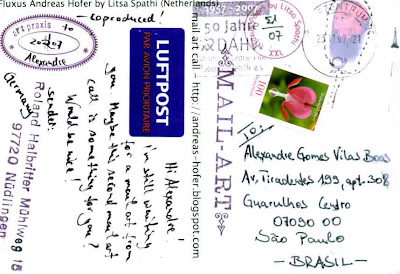 Fluxus Andreas Hofer by Litsa Spathi (Netherlands)
-Coproduced!
artpraxis
to
Alexandre
Germany
sender:
Roland Halbritter Mühlweg 18
97720 Nüdlingen
LUFTPOST
PAR AVION PRIORITAIRE
Hi Alexandre!
I'm still waiting
for a mail art from
you. Maybe this second mail art
call is something for you?
Would be nice!
mail art call - http://andreas-hofer.blogspot.com
MAIL-ART
1957 2007
50 Jahre
100
TO:
Alexandre Gomes Vilas Boas
Av. Tiradentes 199, apt. 308
Guarulhos Centro
07090 00
São Paulo
- BRASIL -